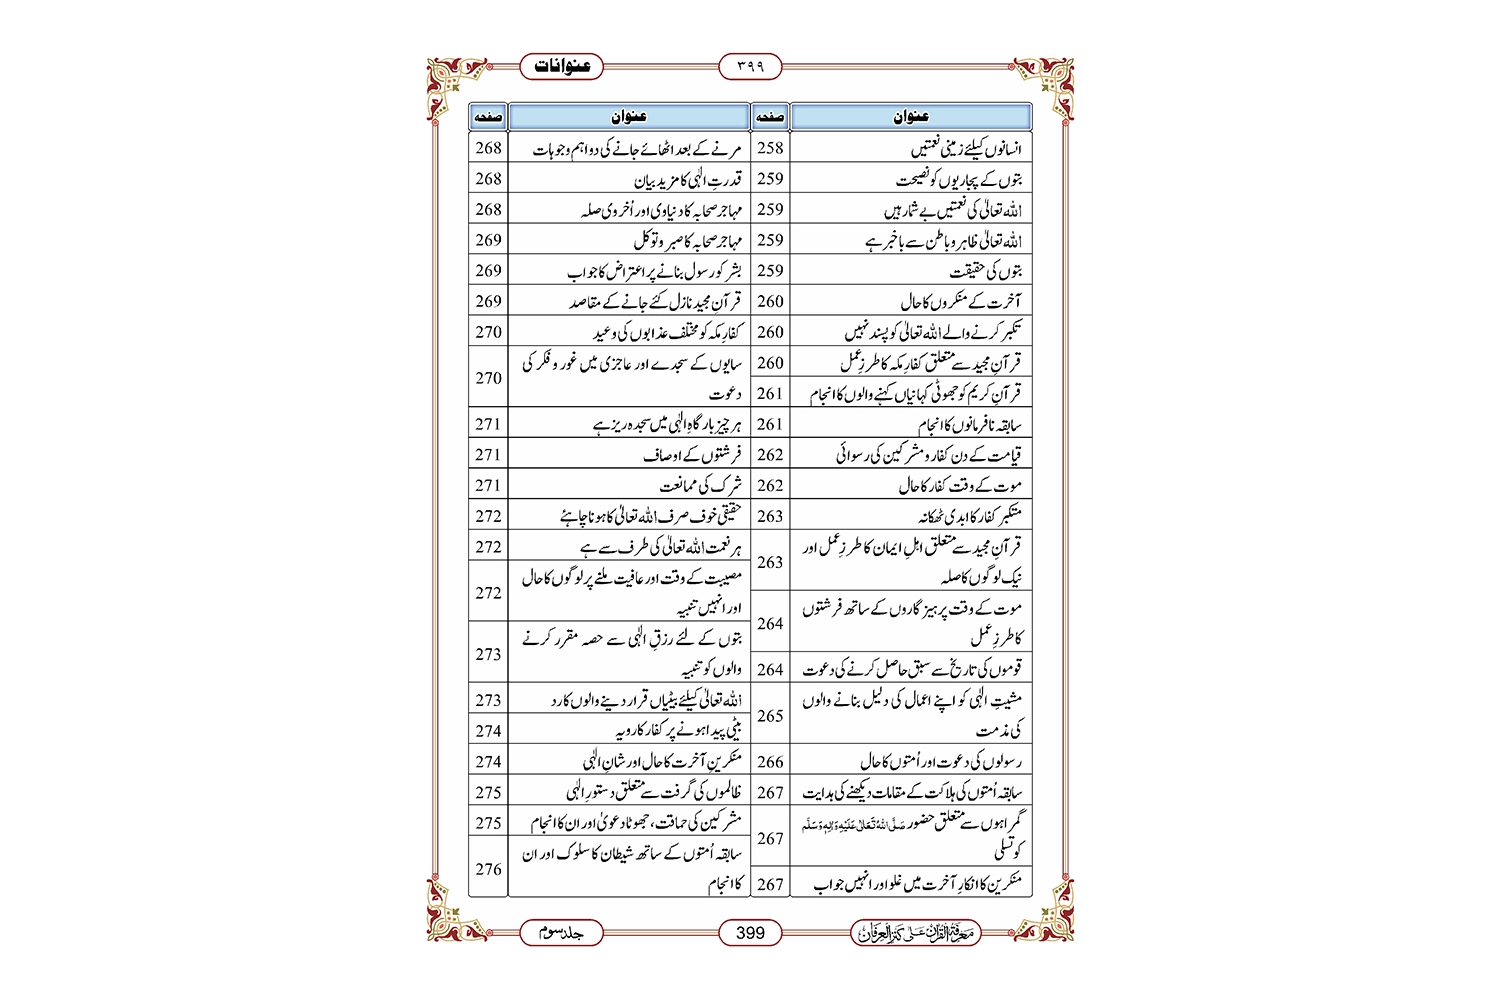 عنوانات
۳۹۹
عنوان صفحہ
انسانوں کیلئے زمینی نعمتیں 258
بتوں کے پجاریوں کو نصیحت 259
اللہ تعالیٰ کی نعمتیں بے شمار ہیں 259
اللہ تعالیٰ ظاہر و باطن سے باخبر ہے 259
بتوں کی حقیقت 259
آخرت کے منکروں کا حال 260
تکبر کرنے والے اللہ تعالیٰ کو پسند نہیں 260
قرآنِ مجید سے متعلق کفارِ مکہ کا طرزِ عمل 260
قرآنِ کریم کو جھوٹی کہانیاں کہنے والوں کا انجام 261
سابقہ نافرمانوں کا انجام 261
قیامت کے دن کفار و مشرکین کی رسوائی 262
موت کے وقت کفار کا حال 262
متکبر کفار کا ابدی ٹھکانہ 263
قرآنِ مجید سے متعلق اہلِ ایمان کا طرزِ عمل اور
نیک لوگوں کا صلہ 263
موت کے وقت پرہیز گاروں کے ساتھ فرشتوں
کا طرزِ عمل 264
قوموں کی تاریخ سے سبق حاصل کرنے کی دعوت 264
مشیتِ الٰہی کو اپنے اعمال کی دلیل بنانے والوں
کی مذمت 265
رسولوں کی دعوت اور اُمتوں کا حال 266
سابقہ اُمتوں کی ہلاکت کے مقامات دیکھنے کی ہدایت 267
گمراہوں سے متعلق حضور صَلَّی اللہُ تَعَالٰی عَلَیْہِ وَاٰلِہٖ وَسَلَّم
کو تسلی 267
منکرین کا انکارِ آخرت میں غلو اور انہیں جواب 267
عنوان صفحہ
مرنے کے بعد اٹھائے جانے کی دو اہم وجوہات 268
قدرتِ الٰہی کا مزید بیان 268
مہاجر صحابہ کا دنیاوی اور اُخروی صلہ 268
مہاجر صحابہ کا صبر و توکل 269
بشر کو رسول بنانے پر اعتراض کا جواب 269
قرآنِ مجید نازل کئے جانے کے مقاصد 269
کفارِ مکہ کو مختلف عذابوں کی وعید 270
سایوں کے سجدے اور عاجزی میں غور و فکر کی
دعوت 270
ہر چیز بارگاہِ الٰہی میں سجدہ ریز ہے 271
فرشتوں کے اوصاف 271
شرک کی ممانعت 271
حقیقی خوف صرف اللہ تعالیٰ کا ہونا چاہئے 272
ہر نعمت اللہ تعالیٰ کی طرف سے ہے 272
مصیبت کے وقت اور عافیت ملنے پر لوگوں کا حال
اور انہیں تنبیہ 272
بتوں کے لئے رزقِ الٰہی سے حصہ مقرر کرنے
والوں کو تنبیہ 273
اللہ تعالیٰ کیلئے بیٹیاں قرار دینے والوں کا رد 273
بیٹی پیدا ہونے پر کفار کا رویہ 274
منکرینِ آخرت کا حال اور شانِ الٰہی 274
ظالموں کی گرفت سے متعلق دستورِ الٰہی 275
مشرکین کی حماقت، جھوٹا دعویٰ اور ان کا انجام 275
سابقہ اُمتوں کے ساتھ شیطان کا سلوک اور ان
کا انجام 276
معرفۃ القرآن علی کنز العرفان
399
جلد سوم